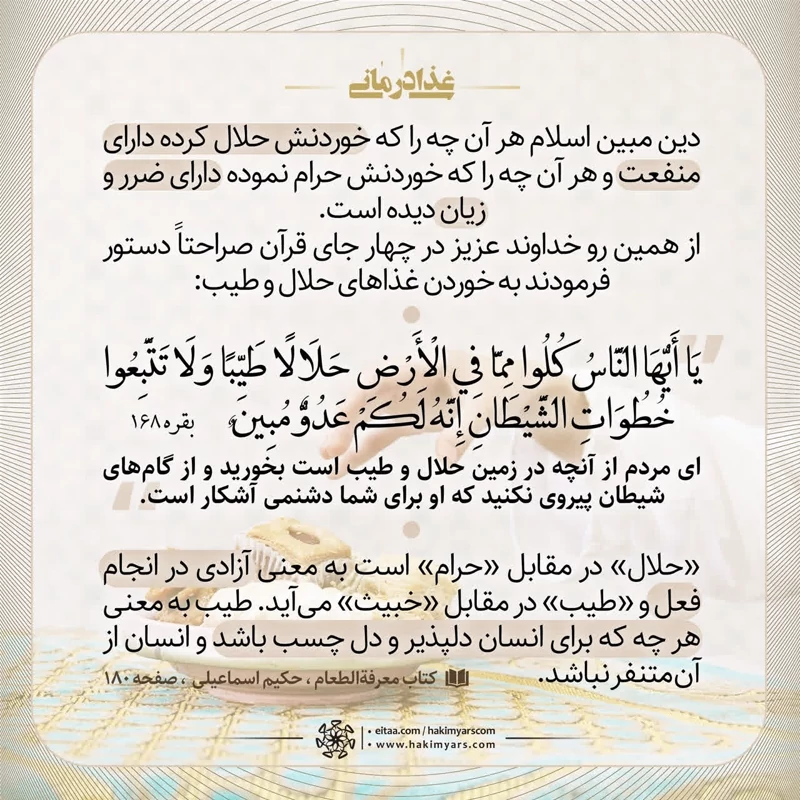 غذادرمانی
دین مبین اسلام هر آن چه را که خوردنش حلال کرده دارای
منفعت و هر آن چه را که خوردنش حرام نموده دارای ضرر و
زیان دیده است.
از همین رو خداوند عزیز در چهار جای قرآن صراحتاً دستور
فرمودند به خوردن غذاهای حلال و طیب:
يَا أَيُّهَا النَّاسُ كُلُوا مِمَّا فِي الْأَرْضِ حَلَالًا طَيِّبًا وَلَا تَتَّبِعُوا
خُطُوَاتِ الشَّيْطَانِ إِنَّهُ لَكُمْ عَدُوٌّ مُبِينٌ بقره ۱۶۸
ای مردم از آنچه در زمین حلال و طیب است بخورید و از گام‌های
شیطان پیروی نکنید که او برای شما دشنمی آشکار است.
«حلال» در مقابل «حرام» است به معنی آزادی در انجام
فعل و «طیب» در مقابل «خبیث» می‌آید. طیب به معنی
هر چه که برای انسان دلپذیر و دل چسب باشد و انسان از
آن متنفر نباشد. کتاب معرفةالطعام ، حکیم اسماعیلی ، صفحه ۱۸۰
• eitaa.com / hakimyarscom
• www.hakimyars.com